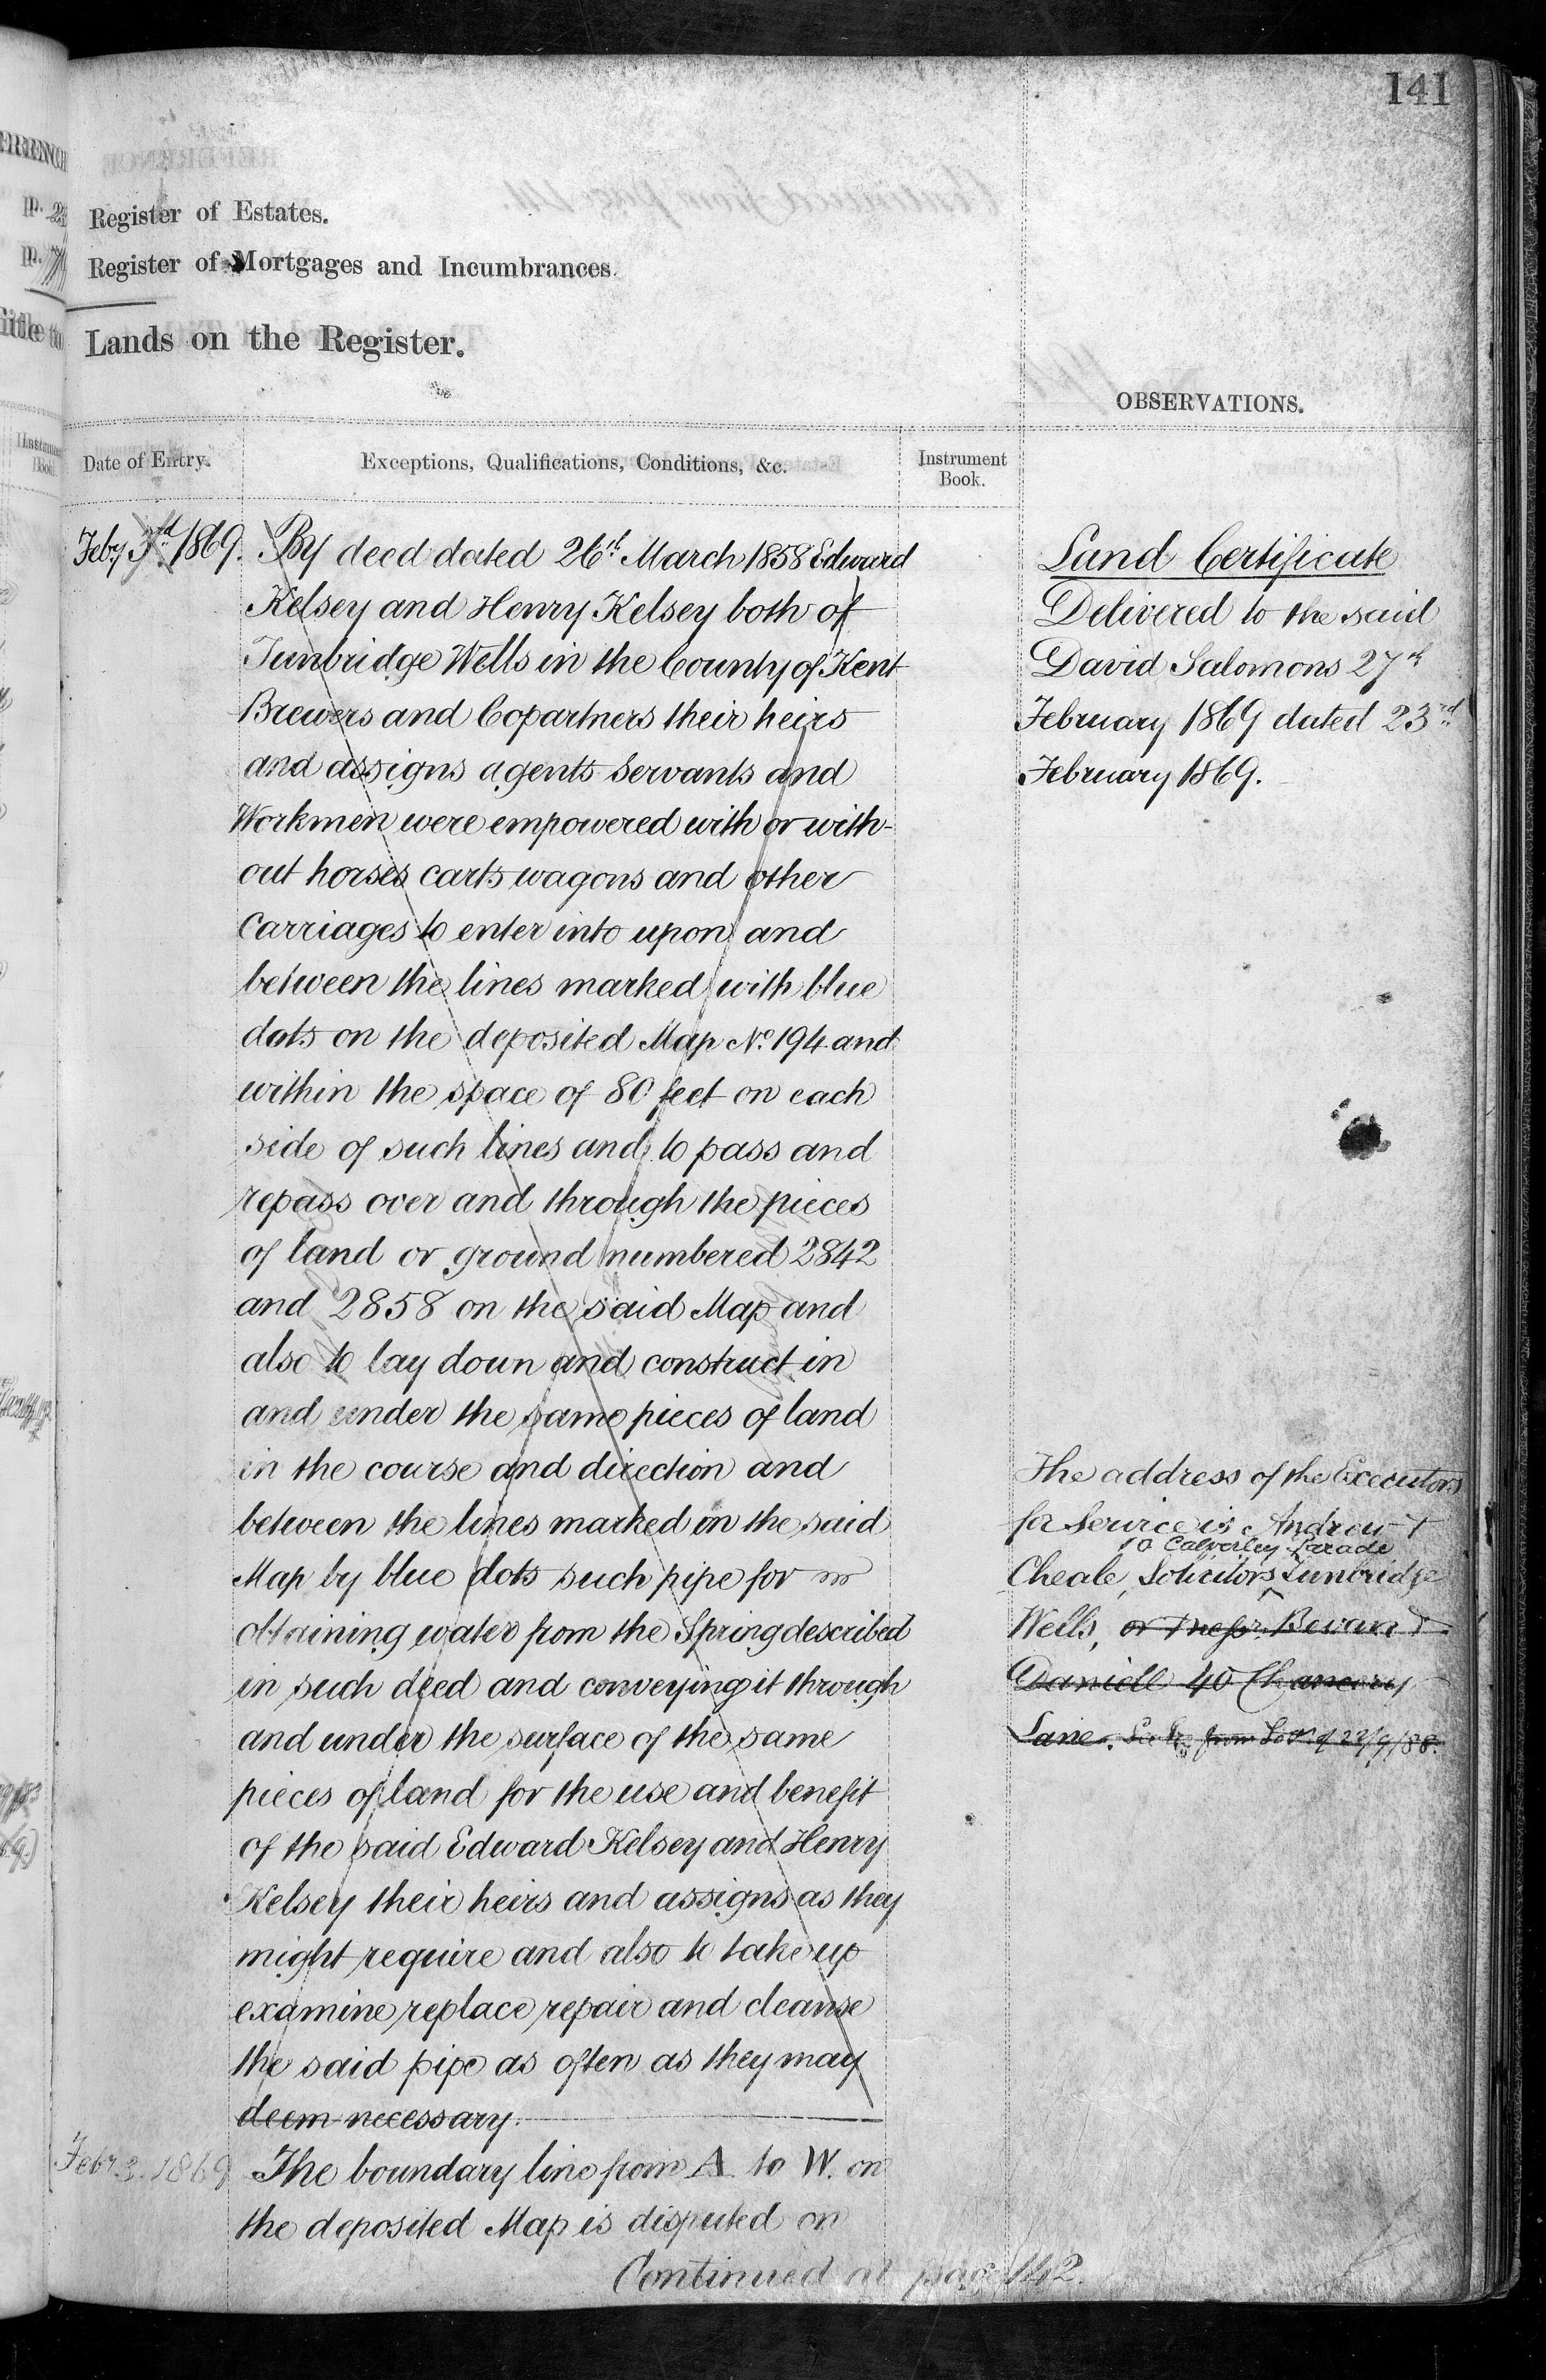 141
Register of Estates.
Register of Mortgages and Incumbrances.
Lands on the Register.
OBSERVATIONS.
Date of Entry.
Exceptions, Qualifications, Conditions, &c.
Instrument
Book.
Feby 3rd 1869.
By deed dated 26th March 1858 Edward
Kelsey and Henry Kelsey both of
Tunbridge Wells in the County of Kent
Brewers and Copartners their heirs
and assigns agents servants and
Workmen were empowered with or with-
out horses carts wagons and other
Carriages to enter into upon and
between the lines marked with blue
dots on the deposited Map No. 194 and
within the space of 80 feet on each
side of such lines and to pass and
repass over and through the pieces
of land or ground numbered 2842
and 2858 on the said Map and
also to lay down and construct in
and under the same pieces of land
in the course and direction and
between the lines marked in the said
Map by blue dots such pipe for
obtaining water from the Spring described
in such deed and conveying it through
and under the surface of the same
pieces of land for the use and benefit
of the said Edward Kelsey and Henry
Kelsey their heirs and assigns as they
might require and also to take up
examine replace repair and cleanse
the said pipe as often as they may
deem necessary.
Feby 3. 1869
The boundary line from A to W. on
the deposited Map is disputed on
Continued at page 142.
Land Certificate
Delivered to the said
David Salomons 27th
February 1869 dated 23rd
February 1869.
The address of the Executors
for Service is Andrew &
10 Calverley Parade
Cheale, Solicitors Tunbridge
Wells, or Messrs. Bevan &
Daniell 40 Chancery
Lane. from of 22/9/88.